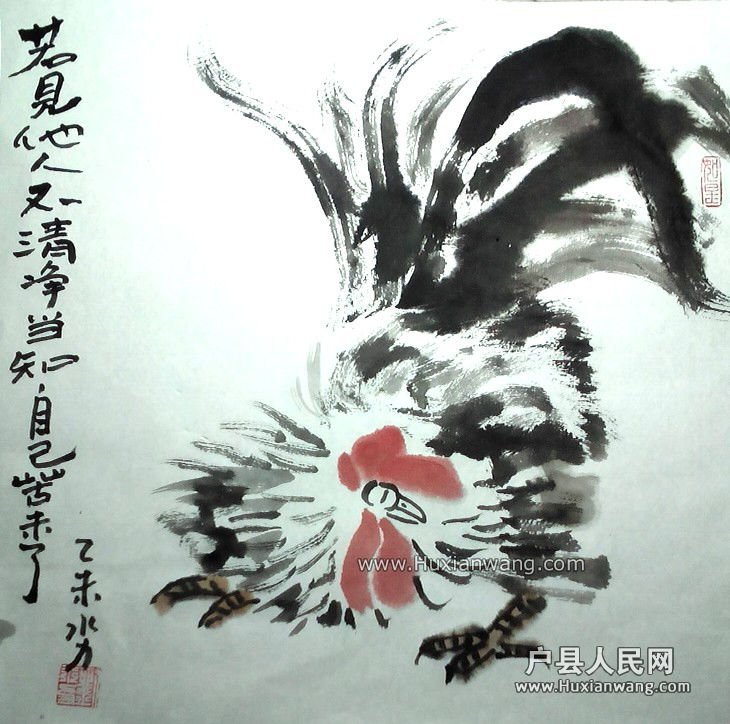 若见他人不清净当知自己苦来了
乙未
www.Huxianwang.com
户县人民网
www.Huxianwang.com